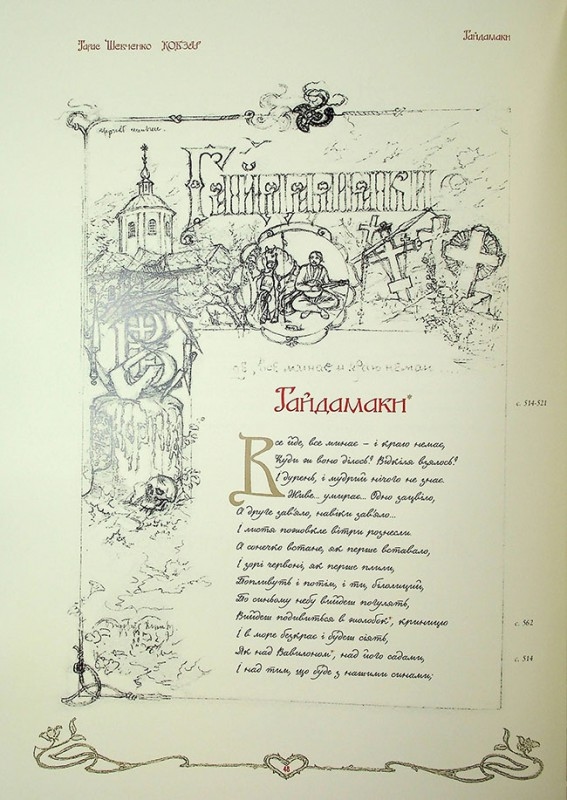 Тарас Шевченко КОБЗАР
Гайдамаки
Гайдамаки
все минає
Гайдамаки*
с. 514-521
Все йде, все минає — і краю немає,
Куди ж воно ділось? Відкіля взялось?
І дурень, і мудрий нічого не знає.
Живе... умирає... Одно зацвіло,
А друге зав'яло, навіки зав'яло...
І листя пожовкле вітри рознесли.
А сонечко встане, як перше вставало,
І зорі червоні, як перше плили,
Попливуть і потім, і ти, білолиций,
По синьому небу вийдеш погулять,
Вийдеш подивиться в жолобок*, криницю
с. 562
І в море безкрає і будеш сіять,
Як над Вавилоном*, над його садами,
с. 514
І над тим, що буде з нашими синами;
48